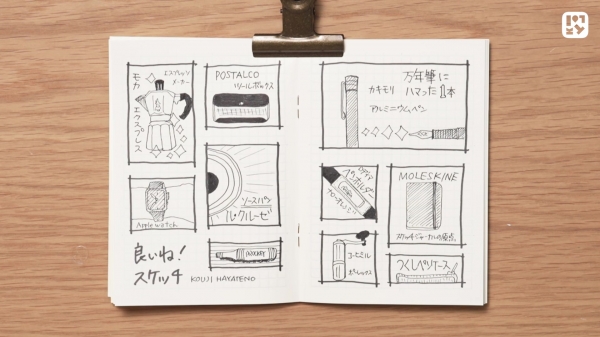 モカ
エクスプレス
エスプレッソ
メーカー
POSTALCO
ツールボックス
Apple watch
ソースパン
ル・クルーゼ
良いね!
スケッチ
KOUJI HAYATENO
万年筆に
カキモリ ハマった1本
アルミニウムペン
ペンホルダー
MOLESKINE
コーヒーミル
ポーレックス
つくしペンケース